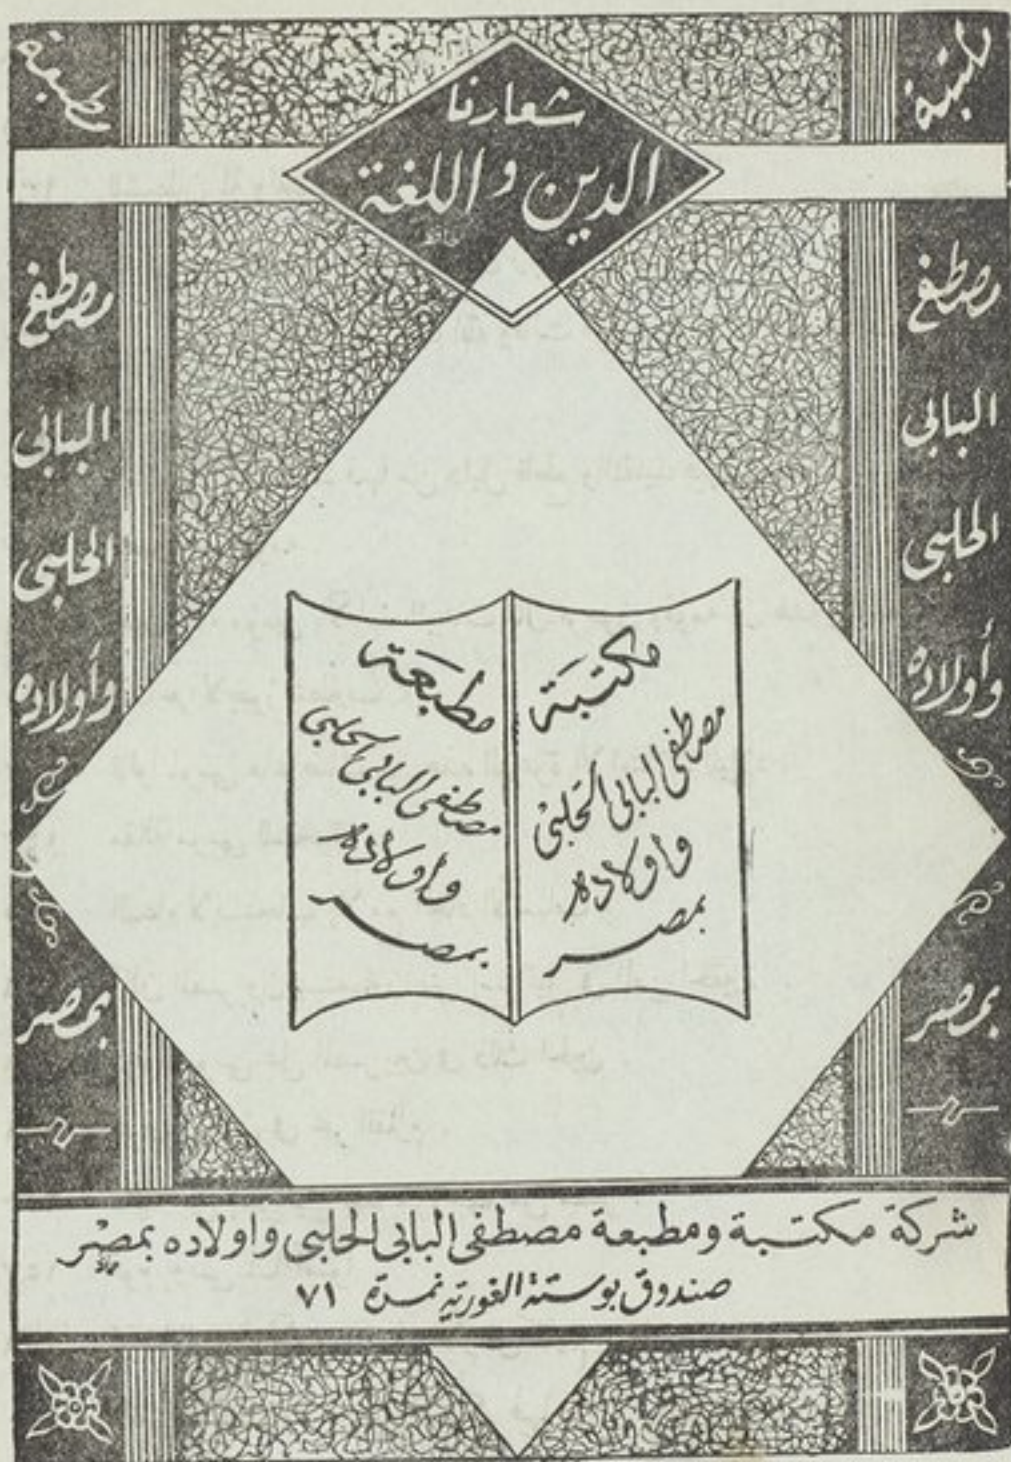 شعارنا
الدين واللغة
مكتبة
مصطفى
البابى
الحلبى
وأولاده
بمصر
مطبعة
مصطفى
البابى
الحلبى
وأولاده
بمصر
مكتبة
مصطفى البابى الحلبى
وأولاده
بمصر
مطبعة
مصطفى البابى الحلبى
وأولاده
بمصر
شركة مكتبة ومطبعة مصطفى البابى الحلبى واولاده بمصر
صندوق بوستة الغورية نمرة ٧١